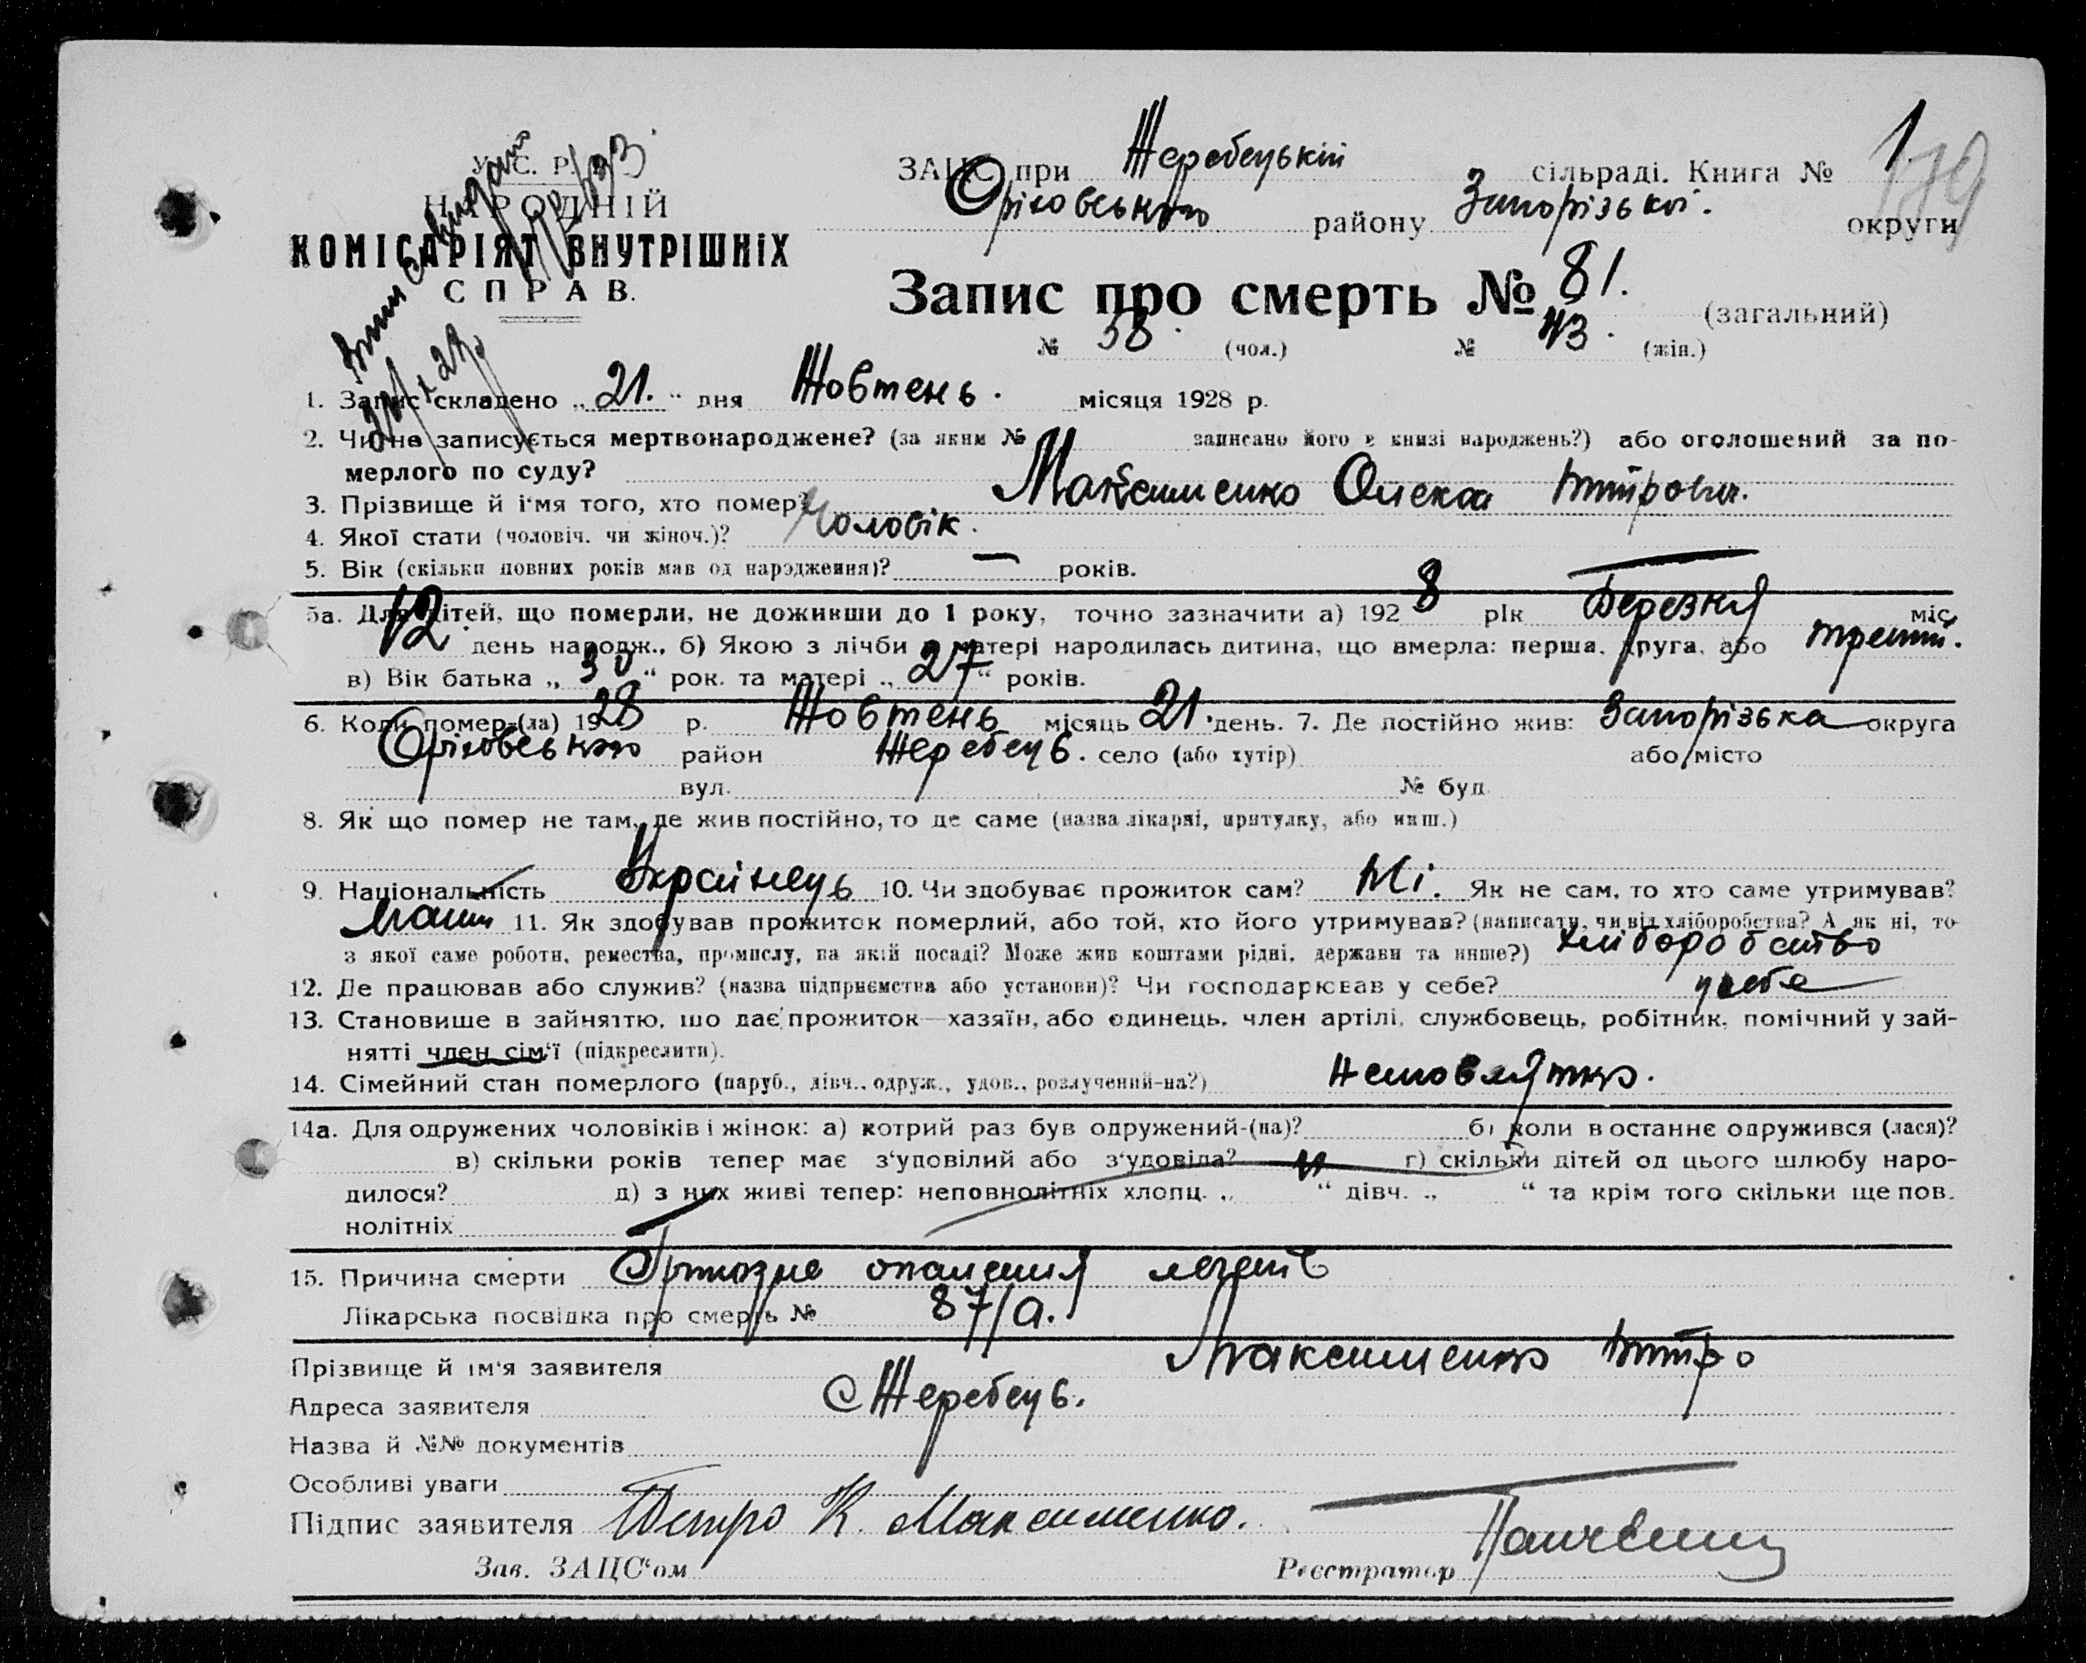 У. С. Р. Р.
НАРОДНІЙ
КОМІСАРІЯТ ВНУТРІШНІХ
СПРАВ.
ЗАЦС при Жеребецькій сільраді. Книга № 1
179
Оріховського району Запорізької. округи
Запис про смерть № 81. (загальний)
№ 38. (чол.) № 43. (жін.)
1. Запис складено „21.“ дня Жовтень. місяця 1928 р.
2. Чи не записується мертвонароджене? (за яким № записано його в книзі народжень?) або оголошений за по-
мерлого по суду?
3. Прізвище й ім'я того, хто помер? Максименко Олекса Дмитрович.
4. Якої стати (чоловіч. чи жіноч.)? Чоловік.
5. Вік (скільки повних років мав од народження)? — років.
5а. Для дітей, що померли, не доживши до 1 року, точно зазначити а) 1928 рік Березня міс.
12 день народж., б) Якою з лічби в матері народилась дитина, що вмерла: перша, друга, або третий.
в) Вік батька „30“ рок. та матері „27“ років.
6. Коли помер-(ла) 1928 р. Жовтень місяць 21. день. 7. Де постійно жив: Запорізька округа
Оріховського район Жеребець. село (або хутір) або місто
вул. № буд.
8. Як що помер не там, де жив постійно, то де саме (назва лікарні, притулку, або инш.)
9. Національність Українець 10. Чи здобуває прожиток сам? Ні. Як не сам, то хто саме утримував?
11. Як здобував прожиток померлий, або той, хто його утримував? (написати, чи від хліборобства? А як ні, то
з якої саме роботи, ремества, промислу, на якій посаді? Може жив коштами рідні, держави та инше?) хліборобство
12. Де працював або служив? (назва підприємства або установи)? Чи господарював у себе? у себе
13. Становище в зайняттю, що дає прожиток—хазяїн, або одинець, член артілі, службовець, робітник, помічний у зай-
нятті член сім'ї (підкреслити).
14. Сімейний стан померлого (паруб., дівч., одруж., удов., розлучений-на?) немовлятко.
14а. Для одружених чоловіків і жінок: а) котрий раз був одружений-(на)? б) коли востаннє одружився (лася)?
в) скільки років тепер має з'удовілий або з'удовіла? г) скільки дітей од цього шлюбу наро-
дилося? д) з них живі тепер: неповнолітніх хлопц. „ “ дівч. „ “ та крім того скільки ще пов.
нолітніх
15. Причина смерти опалення легенів
Лікарська посвідка про смерть № 87/а.
Прізвище й ім'я заявителя Максименко Дмитро
Адреса заявителя с Жеребець.
Назва й №№ документів
Особливі уваги
Підпис заявителя К. Максименко.
Зав. ЗАЦС'ом Реєстратор